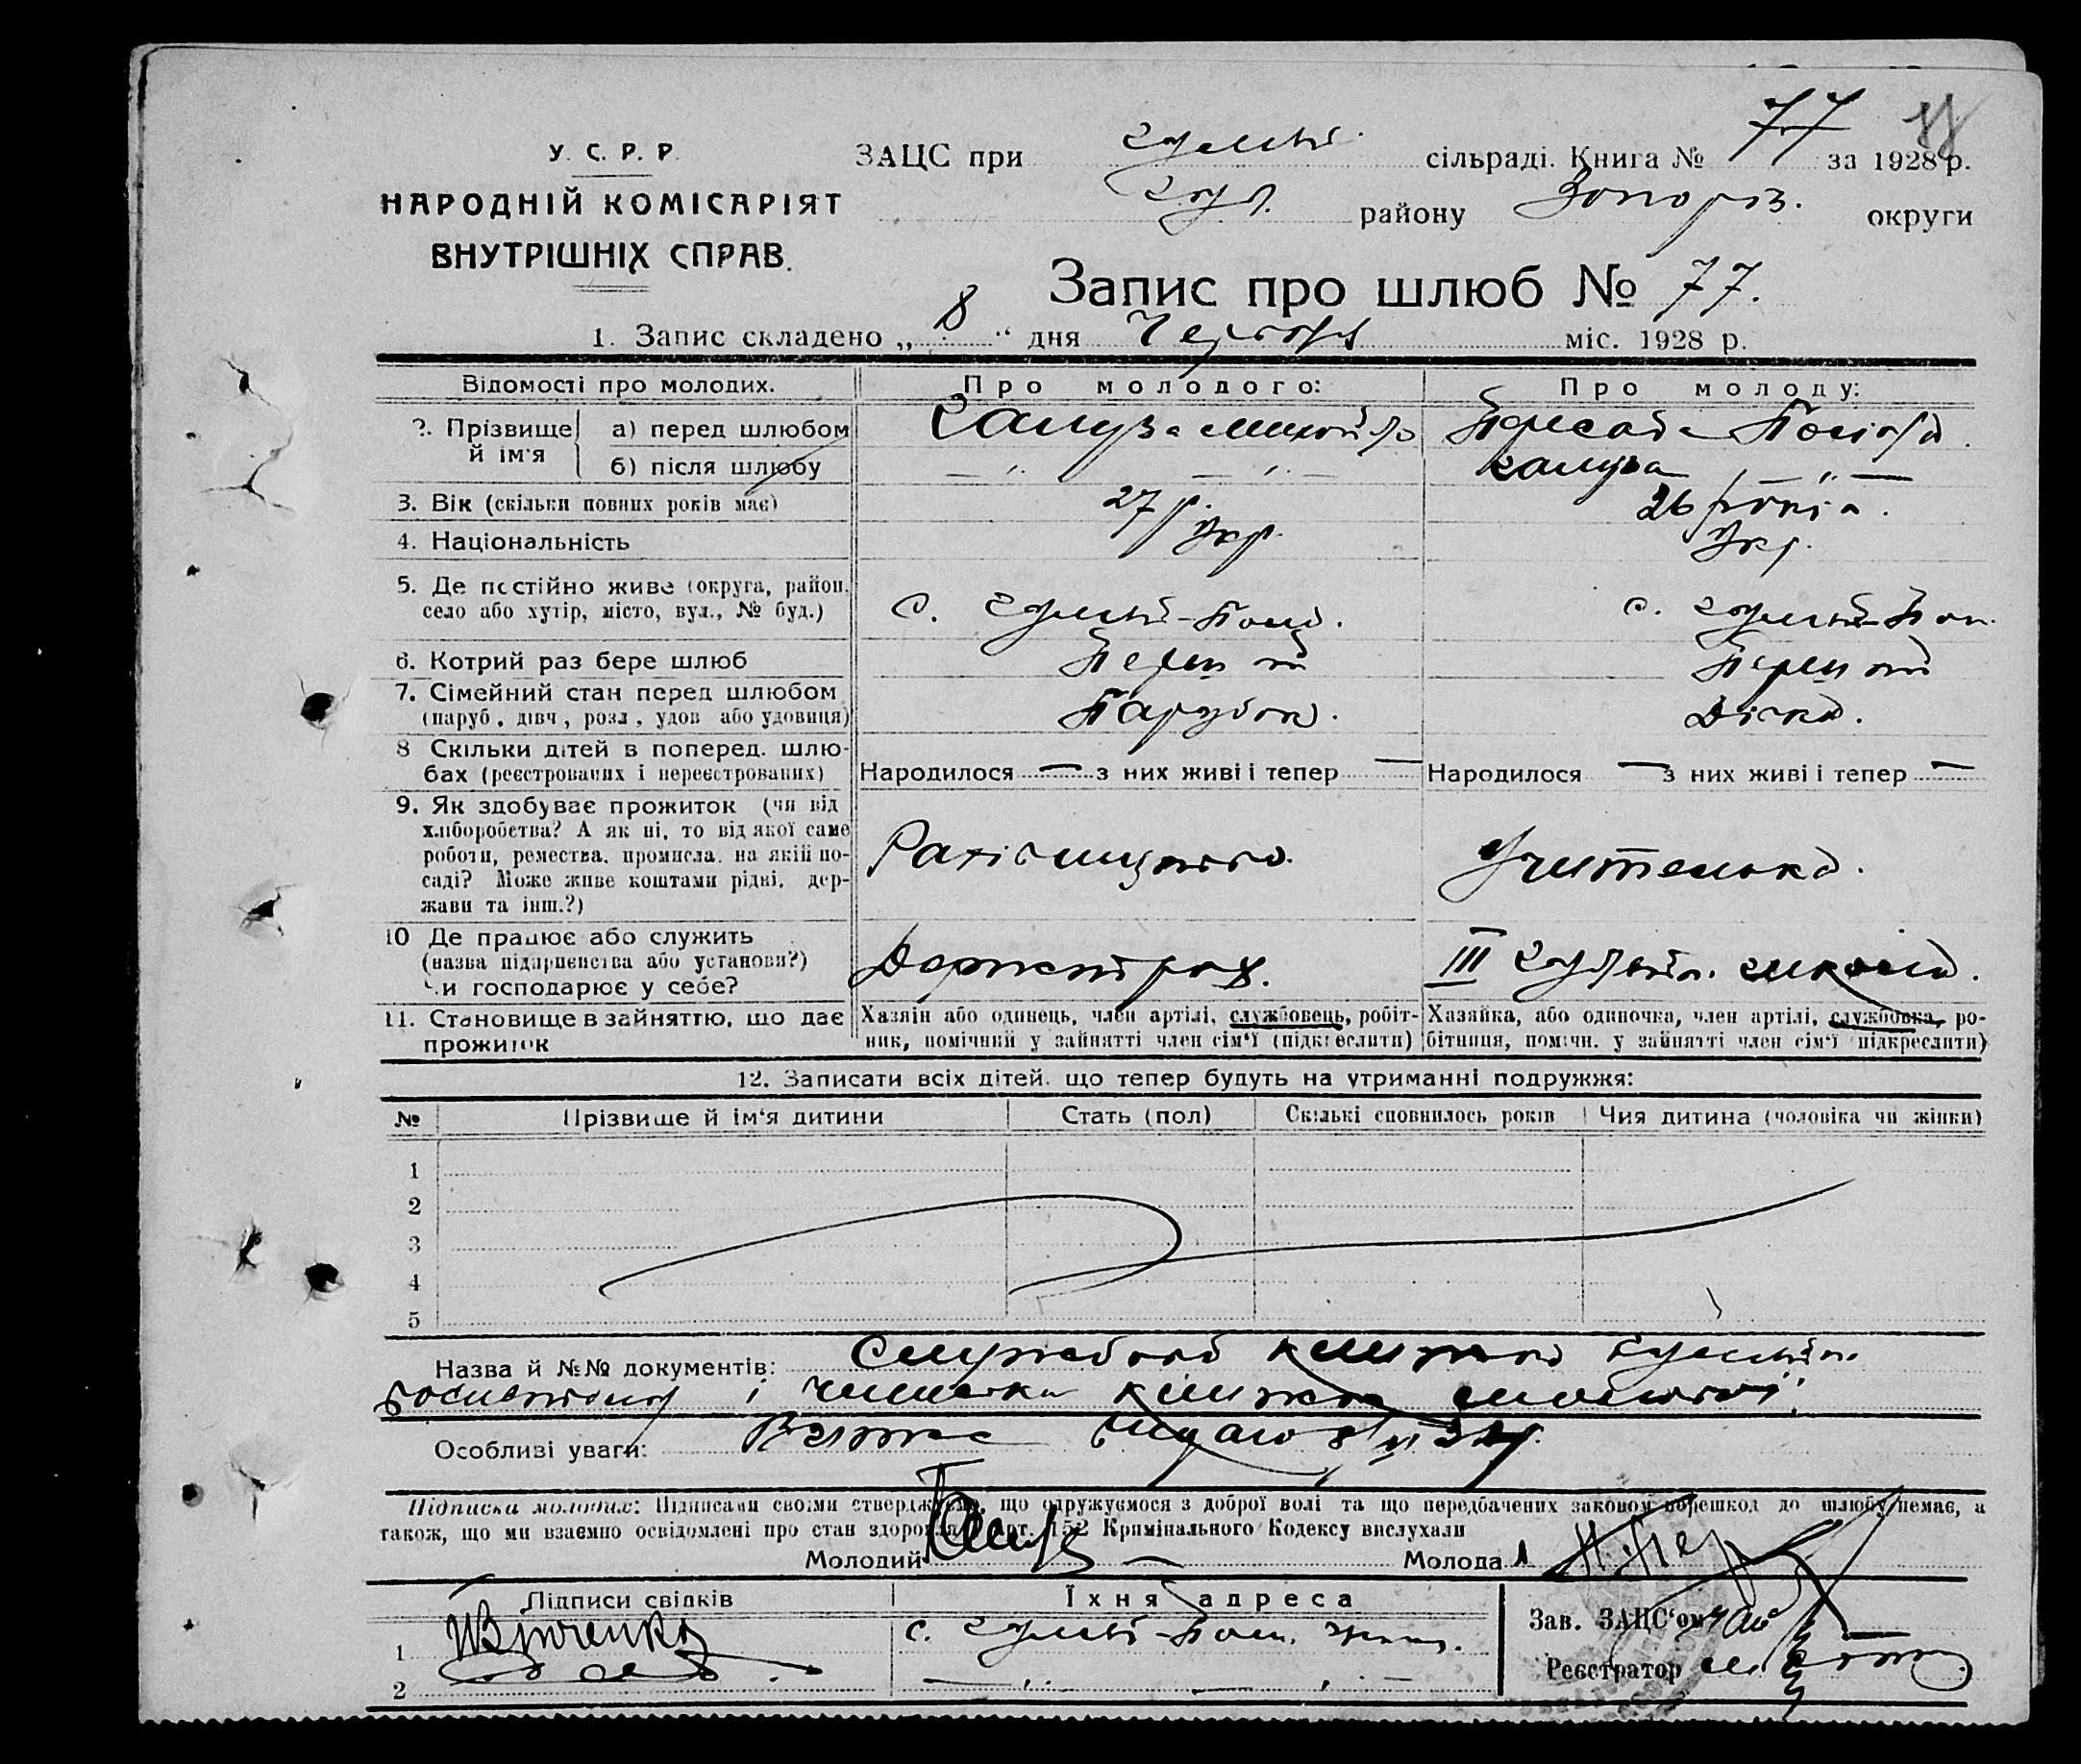 У. С. Р. Р.
НАРОДНІЙ КОМІСАРІЯТ
ВНУТРІШНІХ СПРАВ.
ЗАЦС при сільраді. Книга № 77 за 1928 р.
району Запоріз. округи
Запис про шлюб № 77.
1. Запис складено „ 8 “ дня Червня міс. 1928 р.
Відомості про молодих.
Про молодого:
Про молоду:
2. Прізвище й ім'я
а) перед шлюбом
б) після шлюбу
— „ — „ —
— „ —
3. Вік (скільки повних років має)
27 р.
26 років.
4. Національність
Укр.
Укр.
5. Де постійно живе (округа, район, село або хутір, місто, вул., № буд.)
с. Гуляй-Поле.
с. Гуляй-Пол.
6. Котрий раз бере шлюб
Перший
Перший
7. Сімейний стан перед шлюбом
(паруб., дівч., розл., удов. або удовиця)
Парубок.
Дівка.
8 Скільки дітей в поперед. шлюбах (реєстрованих і нереєстрованих)
Народилося — з них живі і тепер —
Народилося — з них живі і тепер —
9. Як здобуває прожиток (чи від
хліборобства? А як ні, то від якої саме
роботи, ремества, промисла, на якій посаді? Може живе коштами рідні, держави та інш.?)
Учителька.
10 Де працює або служить
(назва підприємства або установи?)
Чи господарює у себе?
Держстрах.
III Гуляйп. школа.
11. Становище в зайняттю, що дає
прожиток
Хазяін або одинець, член артілі, службовець, робітник, помічний у зайнятті член сім'ї (підкреслити)
Хазяйка, або одиночка, член артілі, службовка, робітниця, помічн. у зайнятті член сім'ї (підкреслити)
12. Записати всіх дітей, що тепер будуть на утриманні подружжя:
№ Прізвише й ім'я дитини Стать (пол) Скількі сповнилось років Чия дитина (чоловіка чи жінки)
1
2
3
4
5
Назва й №№ документів: Службова книжка
і членська книжка
Особливі уваги:
Підписка молодих: Підписами своіми стверджуємо, що одружуємося з доброї волі та що передбачених законом перешкод до шлюбу немає, а
також, що ми взаємно освідомлені про стан здоров'я й арт. 152 Кримінального Кодексу вислухали
Молодий
Молода
Підписи свідків
Їхня адреса
1
с. Гуляй-Поле
2
— „ — „ —
Зав. ЗАЦС'ом
Реєстратор